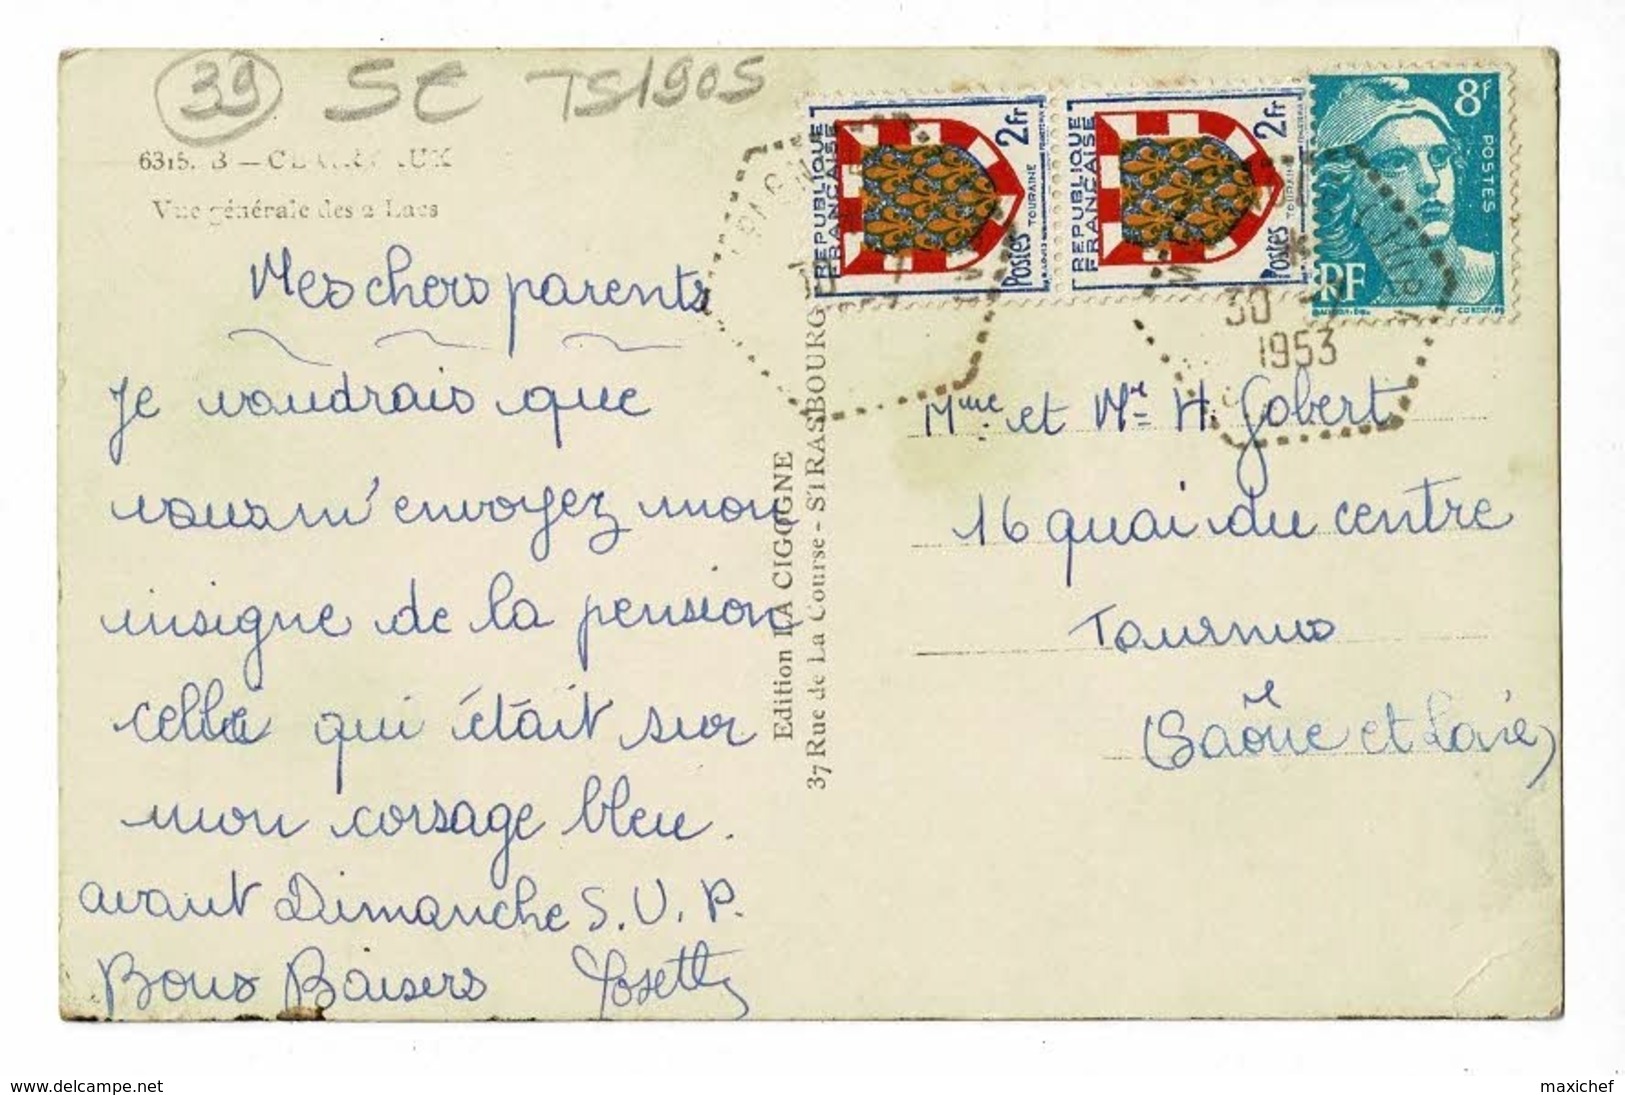 39 SC TS1905
6315. B —
Vue générale des 2 Lacs
Mes chers parents
Je voudrais que
vous m'envoyez mon
insigne de la pension
celle qui était sur
mon corsage bleu.
avant Dimanche S.V.P.
Bons Baisers Josette
Edition LA CIGOGNE
37 Rue de La Course - STRASBOURG
REPUBLIQUE
FRANÇAISE
2Fr
TOURAINE
Postes
REPUBLIQUE
FRANÇAISE
2Fr
TOURAINE
Postes
8F
POSTES
RF
30
1953
Mme et Mr H. Gobert
16 quai du centre
Tournus
(Saône et Loire)
www.delcampe.net
maxichef